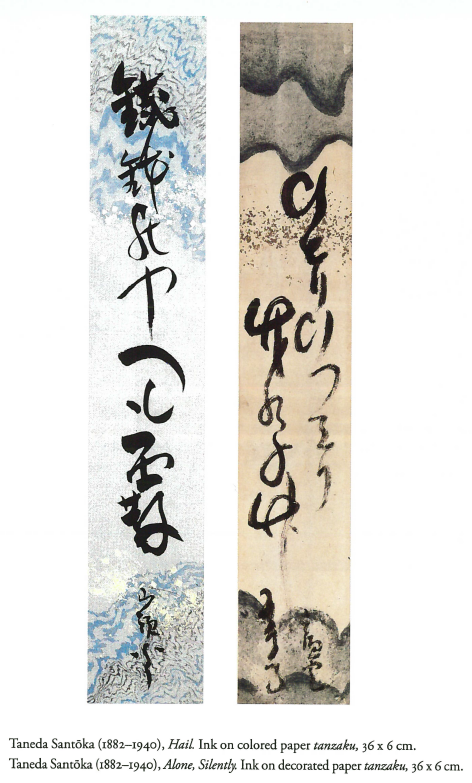 鐵鉢の中へも霰
山頭火
ひとりひつそり
竹の子竹になる
Taneda Santōka (1882–1940), Hail. Ink on colored paper tanzaku, 36 x 6 cm.
Taneda Santōka (1882–1940), Alone, Silently. Ink on decorated paper tanzaku, 36 x 6 cm.